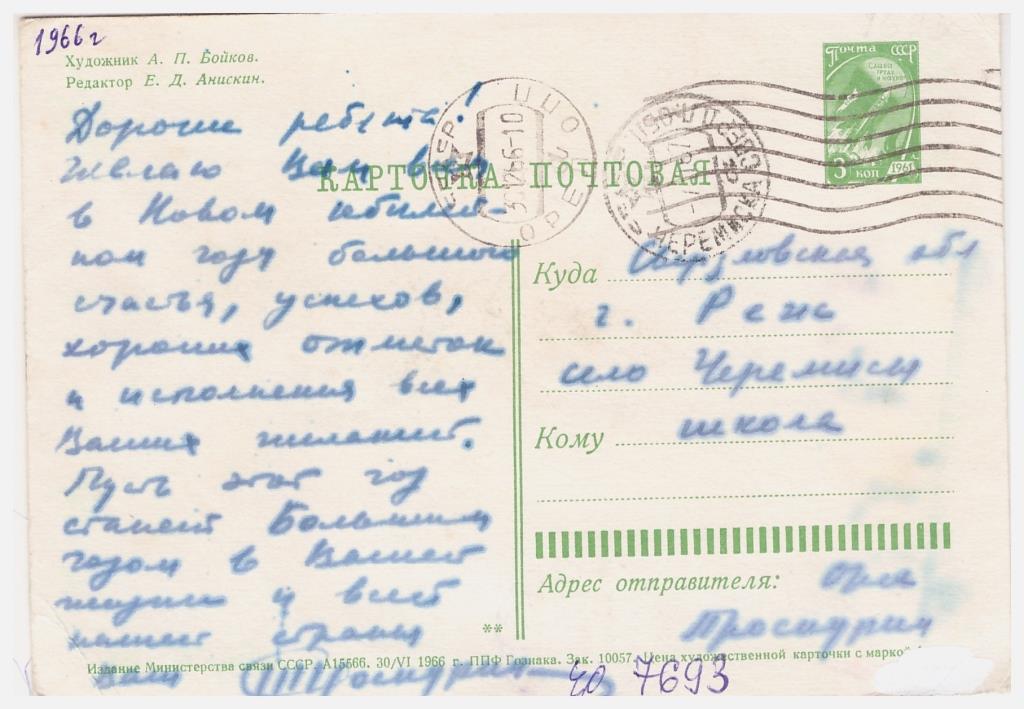 1966 г
Художник А. П. Бойков.
Редактор Е. Д. Анискин.
Почта СССР
Слава труду и науке
3 коп 1961
КАРТОЧКА ПОЧТОВАЯ
31.12.66-10
Дорогие ребята!
Желаю Вам всем
в Новом юбилей-
ном году большого
счастья, успехов,
хороших отметок
и исполнения всех
Ваших желаний.
Пусть этот год
станет большим
годом в Вашей
жизни и всей
нашей страны
Ваш Проскурин
Куда Свердловская обл
г. Реж
село Черемисы
Кому школа
Адрес отправителя: Орел
Проскурин
**
Издание Министерства связи СССР. А15566. 30/VI 1966 г. ППФ Гознака. Зак. 10057. Цена художественной карточки с маркой
ЧО 7693